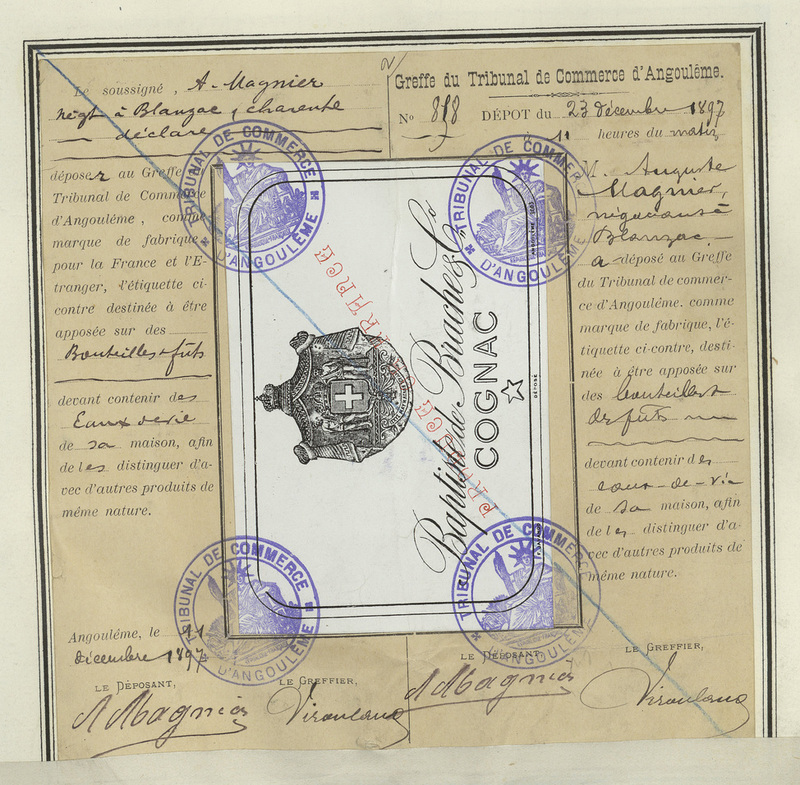 Le soussigné, A. Magnier
négt à Blanzac, charente
déclare
déposer au Greffe
Tribunal de Commerce
d'Angoulême, comme
marque de fabrique
pour la France et l'E-
tranger, l'étiquette ci-
contre destinée à être
apposée sur des
Bouteilles & fûts
devant contenir des
Eaux de vie
de sa maison, afin
de les distinguer d'a-
vec d'autres produits de
même nature.
Angoulême, le
décembre 1897
LE DÉPOSANT,
LE GREFFIER,
A Magnier
Baptiste de Brache & Co
COGNAC
DÉPOSÉ
TRIBUNAL DE COMMERCE
D'ANGOULÊME
TRIBUNAL DE COMMERCE
D'ANGOULÊME
TRIBUNAL DE COMMERCE
D'ANGOULÊME
TRIBUNAL DE COMMERCE
D'ANGOULÊME
Greffe du Tribunal de Commerce d'Angoulême.
No 818 DÉPOT du 23 décembre 1897
11 heures du matin
M. Auguste
Magnier,
négociant à
Blanzac,
a déposé au Greffe
du Tribunal de commer-
ce d'Angoulême. comme
marque de fabrique, l'é-
tiquette ci-contre, desti-
née à être apposée sur
des bouteilles &
des fûts
devant contenir des
eaux-de-vie
de sa maison, afin
de les distinguer d'a-
vec d'autres produits de
même nature.
LE DÉPOSANT,
LE GREFFIER,
A Magnier